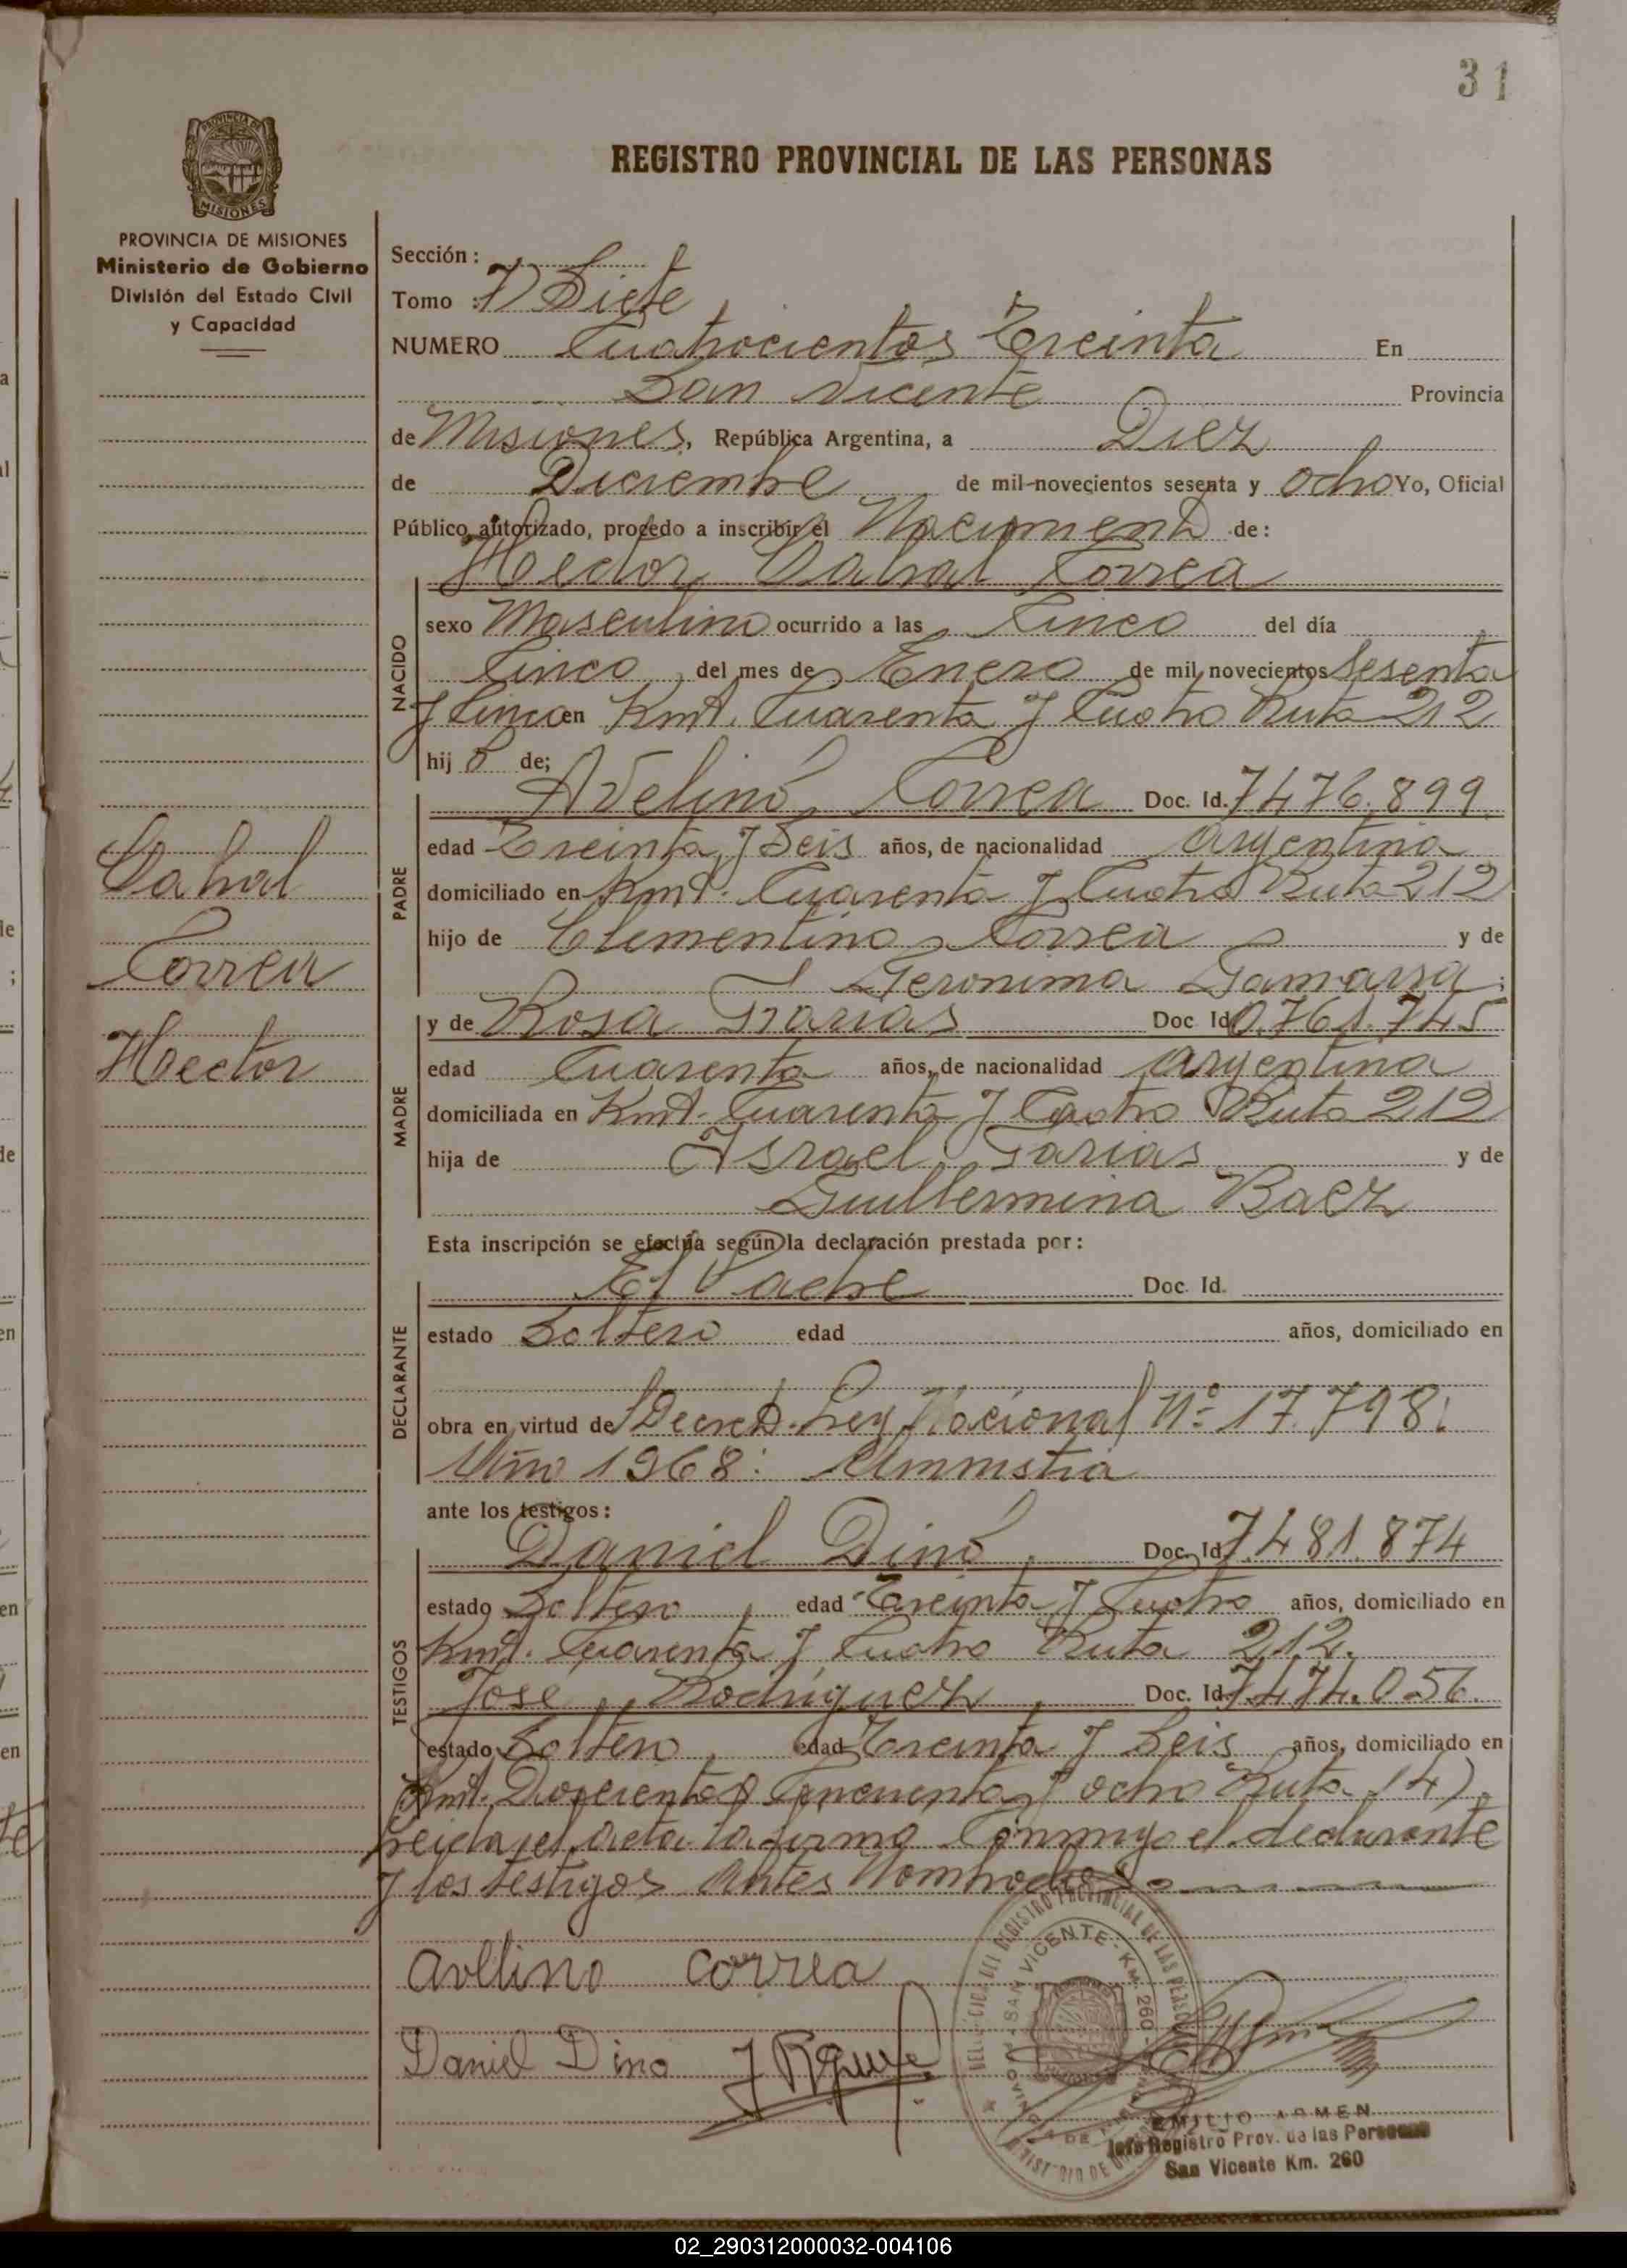 31
PROVINCIA DE
MISIONES
REGISTRO PROVINCIAL DE LAS PERSONAS
PROVINCIA DE MISIONES
Ministerio de Gobierno
División del Estado Civil
y Capacidad
Sección :
Tomo : 7) Siete
NUMERO Cuatrocientos Treinta En
San Vicente Provincia
de Misiones, República Argentina, a Diez
de Diciembre de mil novecientos sesenta y ocho Yo, Oficial
Público autorizado, procedo a inscribir el Nacimiento de :
Hector Cabral Correa
NACIDO
sexo Masculino ocurrido a las Cinco del día
Cinco del mes de Enero de mil novecientos Sesenta
y Cinco en Kmt. Cuarenta y Cuatro Ruta 212
hij o de;
PADRE
Avelino Correa Doc. Id. 7476.899
edad Treinta y Seis años, de nacionalidad argentina
domiciliado en Kmt. Cuarenta y Cuatro Ruta 212
hijo de Clementino Correa y de
Geronima Gamarra ;
MADRE
y de Rosa Farias Doc Id 0.761.745
edad Cuarenta años, de nacionalidad argentina
domiciliada en Kmt. Cuarenta y Cuatro Ruta 212
hija de Israel Farias y de
Guillermina Baez
Esta inscripción se efectúa según la declaración prestada por :
DECLARANTE
El Padre Doc. Id.
estado Soltero edad años, domiciliado en
obra en virtud de Decreto Ley Nacional Nº 17.798.
Año 1968. Amnistia
ante los testigos :
TESTIGOS
Daniel Dino, Doc. Id 7.481.874
estado Soltero, edad Treinta y Cuatro años, domiciliado en
Kmt. Cuarenta y Cuatro Ruta 212.
Jose Rodriguez, Doc. Id. 7.474.056.
estado Soltero, edad Treinta y Seis años, domiciliado en
Kmt. Doscientos Cincuenta y ocho Ruta 14)
Leida el acta la firma Conmigo el declarante
y los testigos antes Nombrados
Cabral
Correa
Hector
avelino correa
Daniel Dino
SAN VICENTE - KM. 260
EMILIO ARMEN
Jefe Registro Prov. de las Personas
San Vicente Km. 260
02_290312000032-004106